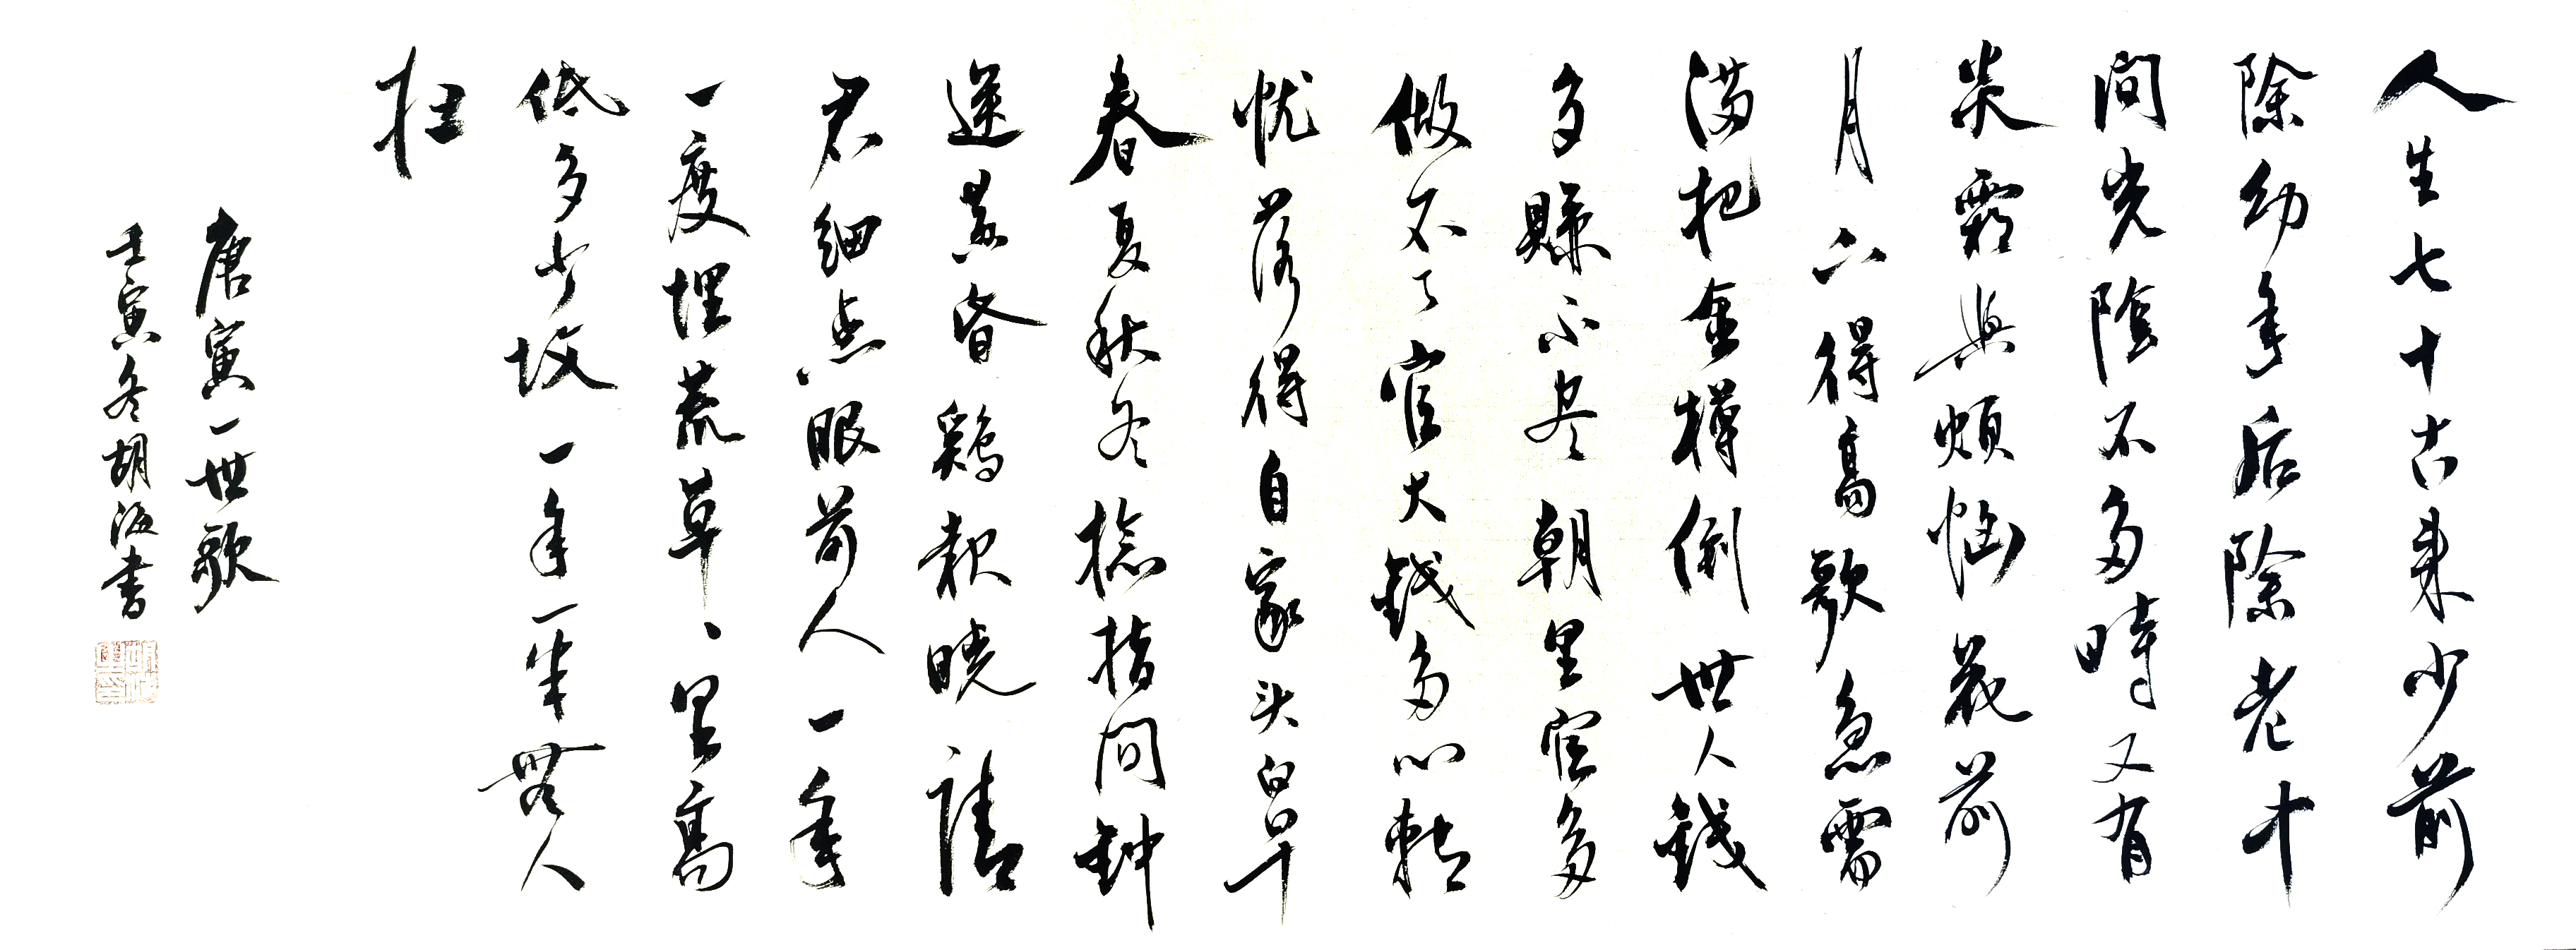 人生七十古来少前
除幼年后除老中
间光陰不多時又有
炎霜與煩惱花前
月下得高歌急需
满把金樽倒世人钱
多赚不尽朝里官多
做不了官大钱多心转
忧落得自家头白早
春夏秋冬捻指间钟
送黄昏鷄报晓請
君细点眼前人一年
一度埋荒草、里高
低多少坟一年一半無人
扫
唐寅一世歌
壬寅冬胡海书